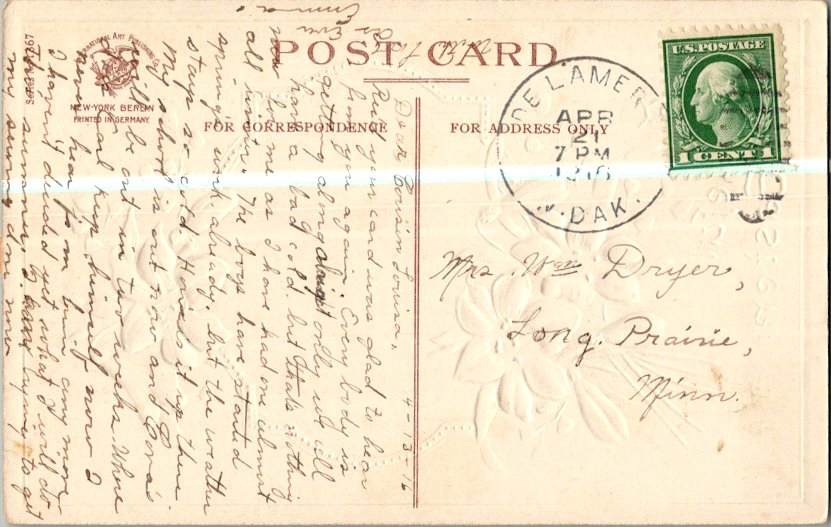 POST CARD
INTERNATIONAL ART PUBLISHING CO.
NEW-YORK BERLIN
PRINTED IN GERMANY
FOR CORRESPONDENCE
FOR ADDRESS ONLY
U.S. POSTAGE
1 CENT 1
DE LAMERE
APR
21
7 PM
N. DAK.
Mrs. Wm Dryer,
Long. Prairie,
Minn.
4-13-16
Dear Louisa,
Rec'd your card was glad to hear
from you again. Everybody is
getting along alright only we all
have a bad cold. but thats nothing
new for me as I have had one almost
all winter. The boys have started
spring's work already, but the weather
stays so cold. How is it up there
My school is out now and
will be out in two weeks. Where
keep himself now? I
never hear from him any more
I haven't decided yet what I will do
this summer. I have to get
my done now
As Ever
Emma